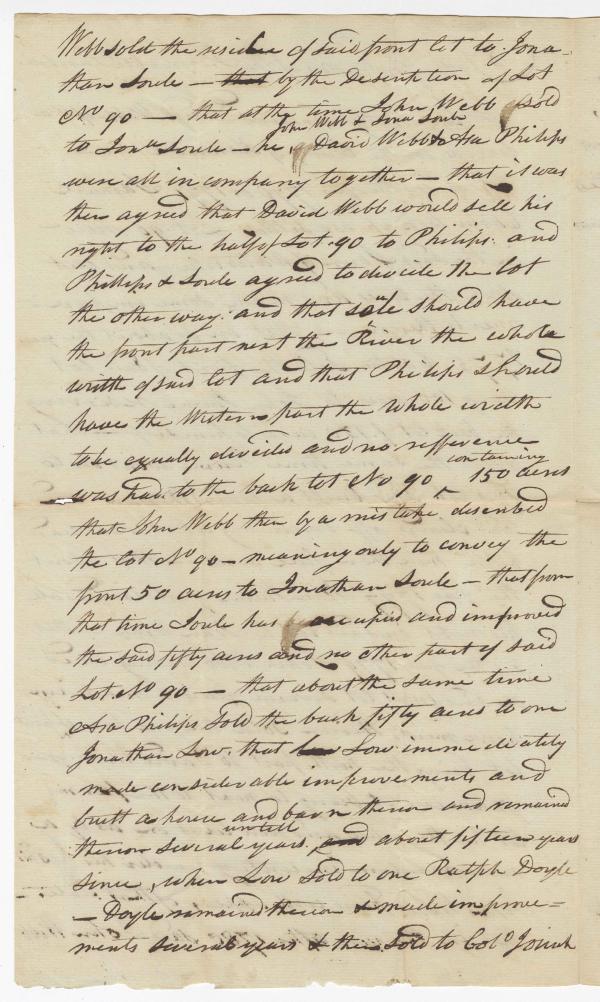 Webb sold the residue of said front lot to Jona-
than Soule — that by the Description of Lot
No 90 — that at the time John Webb sold
John Webb & Jona Soule
to Jona Soule — he, David Webb & Asa Philips
were all in company together — that it was
then agreed that David Webb would sell his
right to the half of Lot 90 to Philips and
Phillips & Soule agreed to divide the lot
the other way: and that Soule should have
the front part next the River the whole
width of said lot and that Philips should
have the Western part the whole width
to be equally divided and no refference
containing
was had to the back lot No 90 ‸ 150 acres
that John Webb then by a mistake described
the lot No 90 — meaning only to convey the
front 50 acres to Jonathan Soule — that from
that time Soule has occupied and improved
the said fifty acres and no other part of said
Lot No 90 — that about the same time
Asa Philips Sold the back fifty acres to one
Jonathan Low. that Low immediately
made considerable improvements and
built a house and barn theron and remained
untill
theron several years, and about fifteen years
since, when Low Sold to one Ralph Doyle
— Doyle remained theron & made improve-
ments several years & then Sold to Colo Josiah